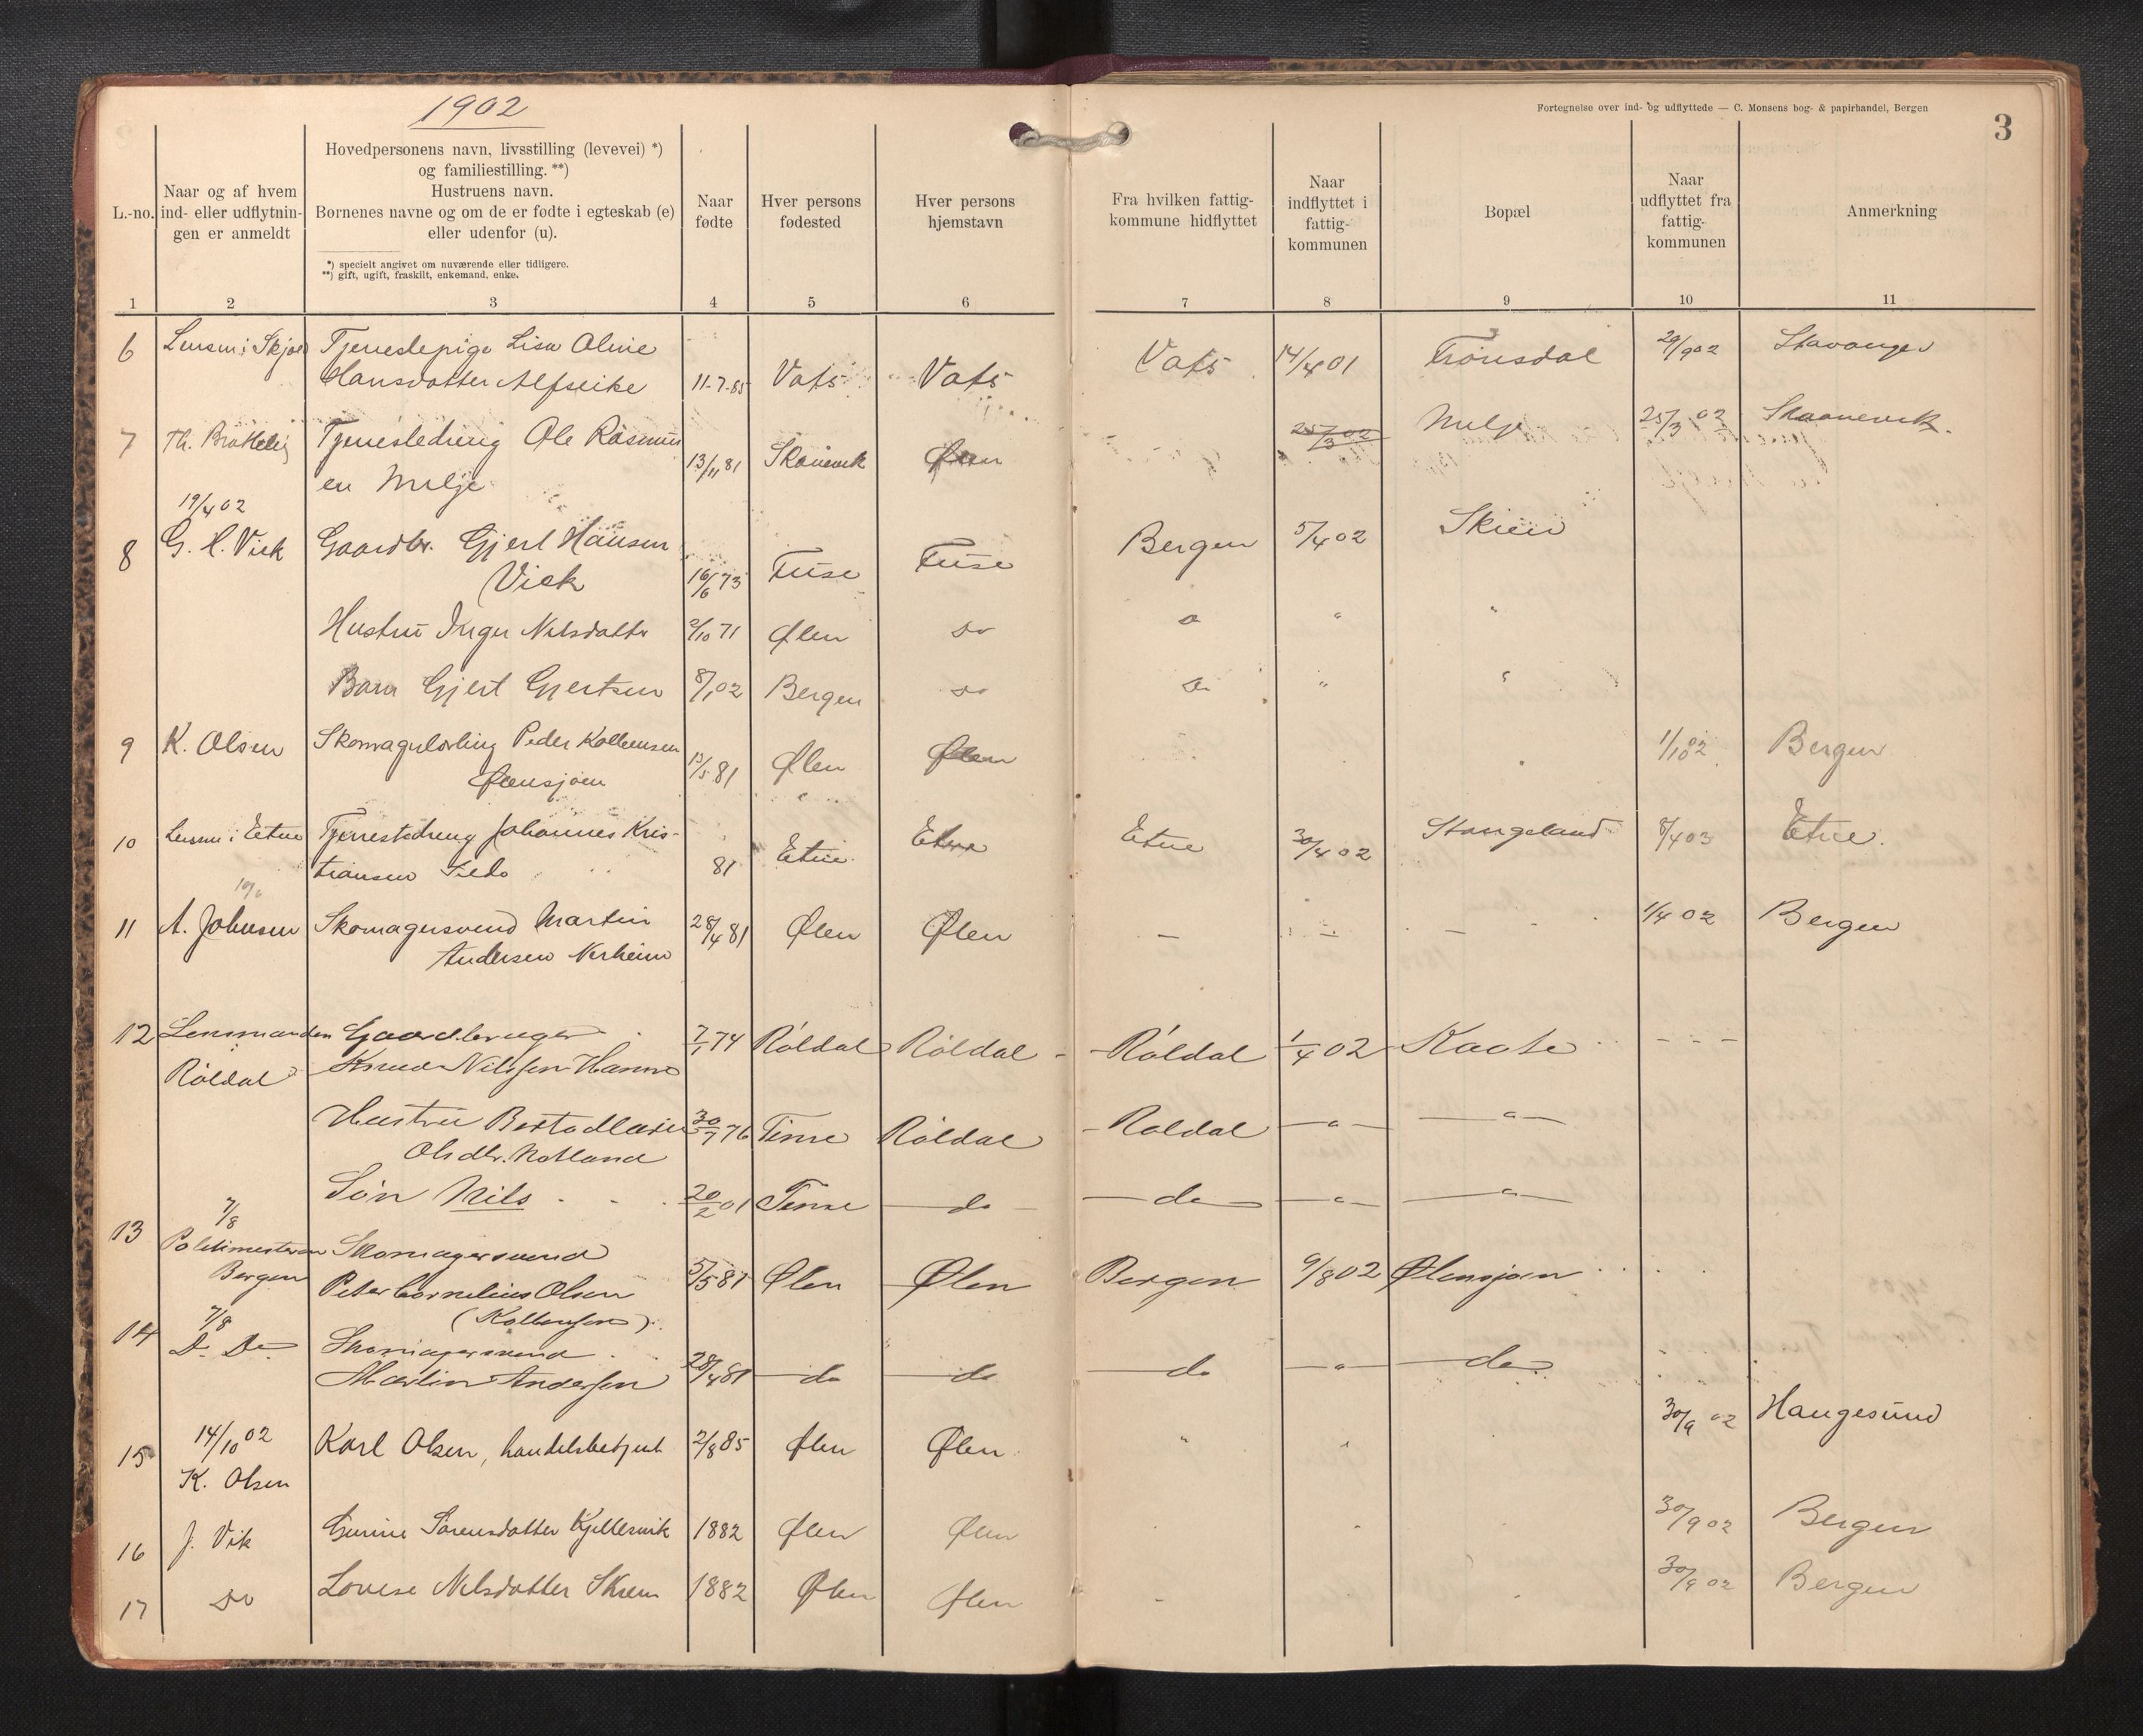 1902
Fortegnelse over ind- og udflyttede — C. Monsens bog- & papirhandel, Bergen
3
L.-no.
Naar og af hvem
ind- eller udflytnin-
gen er anmeldt
Hovedpersonens navn, livsstilling (levevei) *)
og familiestilling. **)
Hustruens navn.
Børnenes navne og om de er fødte i egteskab (e)
eller udenfor (u).
*) specielt angivet om nuværende eller tidligere.
**) gift, ugift, fraskilt, enkemand, enke.
Naar
fødte
Hver persons
fødested
Hver persons
hjemstavn
Fra hvilken fattig-
kommune hidflyttet
Naar
indflyttet i
fattig-
kommunen
Bopæl
Naar
udflyttet fra
fattig-
kommunen
Anmerkning
1 2 3 4 5 6 7 8 9 10 11
6 Lensm i Skjold Tjenestepige Lisa Oline Vats 14/4 01 Tronsdal 29/9 02 Stavanger
Hansdatter Alfseike 11-7-85 Vats Vats
7 Th. Bratteli Tjenestedreng Ole Rasmus 25/3 02 Melje 25/3 02 Skaanevik.
en Melje 13/11 81 Skånevik Ølen
19/4 02
8 G. H. Vik Gaardbr. Gjert Hansen Bergen 5/4 02 Skien
Vick 16/6 73 Fuse Fuse
Hustru Inger Nilsdatter 9/10 71 Ølen do do " "
Barn Gjert Gjertsen 8/1 02 Bergen do do " "
9 K. Olsen Skomagerlærling Peder Kolbensen 1/10 02 Bergen
Ølensjøen 13/5 81 Ølen Ølen
10 Lensm i Etne Tjenestedreng Johannes Kris- Etne 30/4 02 Stangeland 8/4 03 Etne.
tiansen 81 Etne Etne
11 A. Johnsen Skomagersvend Martin 28/4 81 Ølen Ølen — — — 1/4 02 Bergen
Andersen Nerheim
12 Lensmanden Gaardbruger 7/1 74 Röldal Röldal - Röldal 1/4 02 Kaate - - -
Röldal Knud Nilssen Hamre
Hustru Berta Marie 30/7 76 Time Röldal - Röldal — " — — " —
Olsdtr. Motland
Søn Nils 20/2 01 Time — do — — do — — " — — " —
13 7/8
Politimesteren Skomagersvend
Bergen Peter Cornelius Olsen 5/5 81 Ølen Ølen Bergen 9/8 02 Ølensjøen
(Kolbensen).
14 7/8
Do Do Skomagersvend
Martin Andersen 28/4 81 — do — do — do — " — — do —
15 14/10 02 Karl Olsen, handelsbetjent 2/8 85 Ølen Ølen " " 30/9 02 Haugesund
K. Olsen
16 J. Vik Gurine Sørensdatter Kjellesvik 1882 Ølen Ølen 30/9 02 Bergen
17 do Lovise Nilsdatter Skrem 1882 Ølen Ølen 30/9 02 Bergen